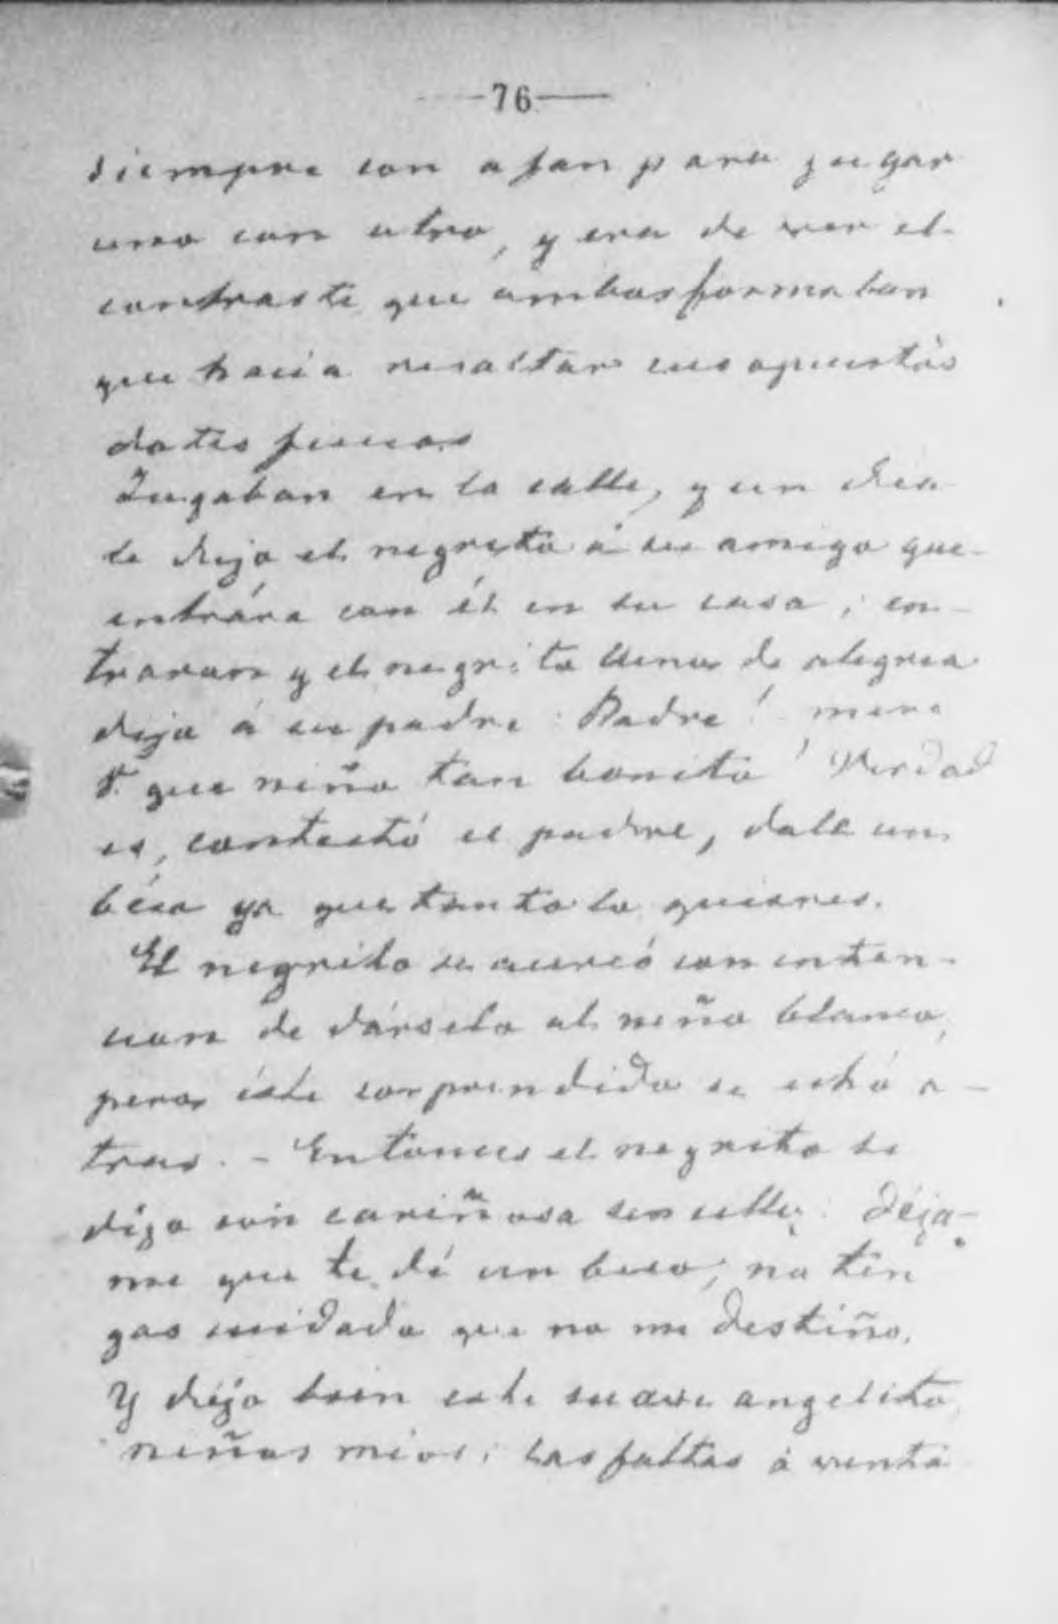 76
siempre con afan para jugar
uno con otro, y era de ver el
contraste que ambos formaban
que hacia resaltar sus opuestos
dotes fisicas
Jugaban en la calle, y un dia
le dijo el negrito á su amigo que
entrára con él en su casa; en-
traron y el negrito lleno de alegria
dijo á su padre: Padre! mire
V. que niño tan bonito! Verdad
es, contestó el padre, dale un
béso ya que tanto lo quieres.
El negrito se acercó con inten-
cion de dárselo al niño blanco,
pero éste sorprendido se echó a-
tras. - Entonces el negrito le
dijo con cariñosa sencillez: Déja-
me que te dé un beso; no ten
gas cuidado que no me destiño.
Y dijo bien este suave angelito,
niños mios; las faltas ó